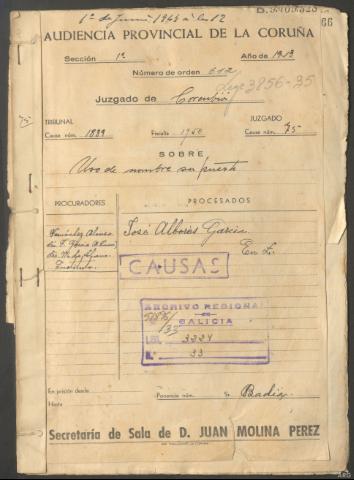 1º de Junio 1945 a las 12
66
AUDIENCIA PROVINCIAL DE LA CORUÑA
Sección 1ª Año de 1943
Número de orden 612
Lego 3856-35
Juzgado de Corcubión
TRIBUNAL JUZGADO
Causa núm. 1839 Fiscalía 1950 Causa núm. 75
SOBRE
Uso de nombre supuesto
PROCURADORES PROCESADOS
José Albores García
En L.
CAUSAS
ARCHIVO REGIONAL
DE
GALICIA
LEG. 3334
N.º 33
En prisión desde
Hasta
Ponencia núm. Sr. Badía
Secretaría de Sala de D. JUAN MOLINA PEREZ